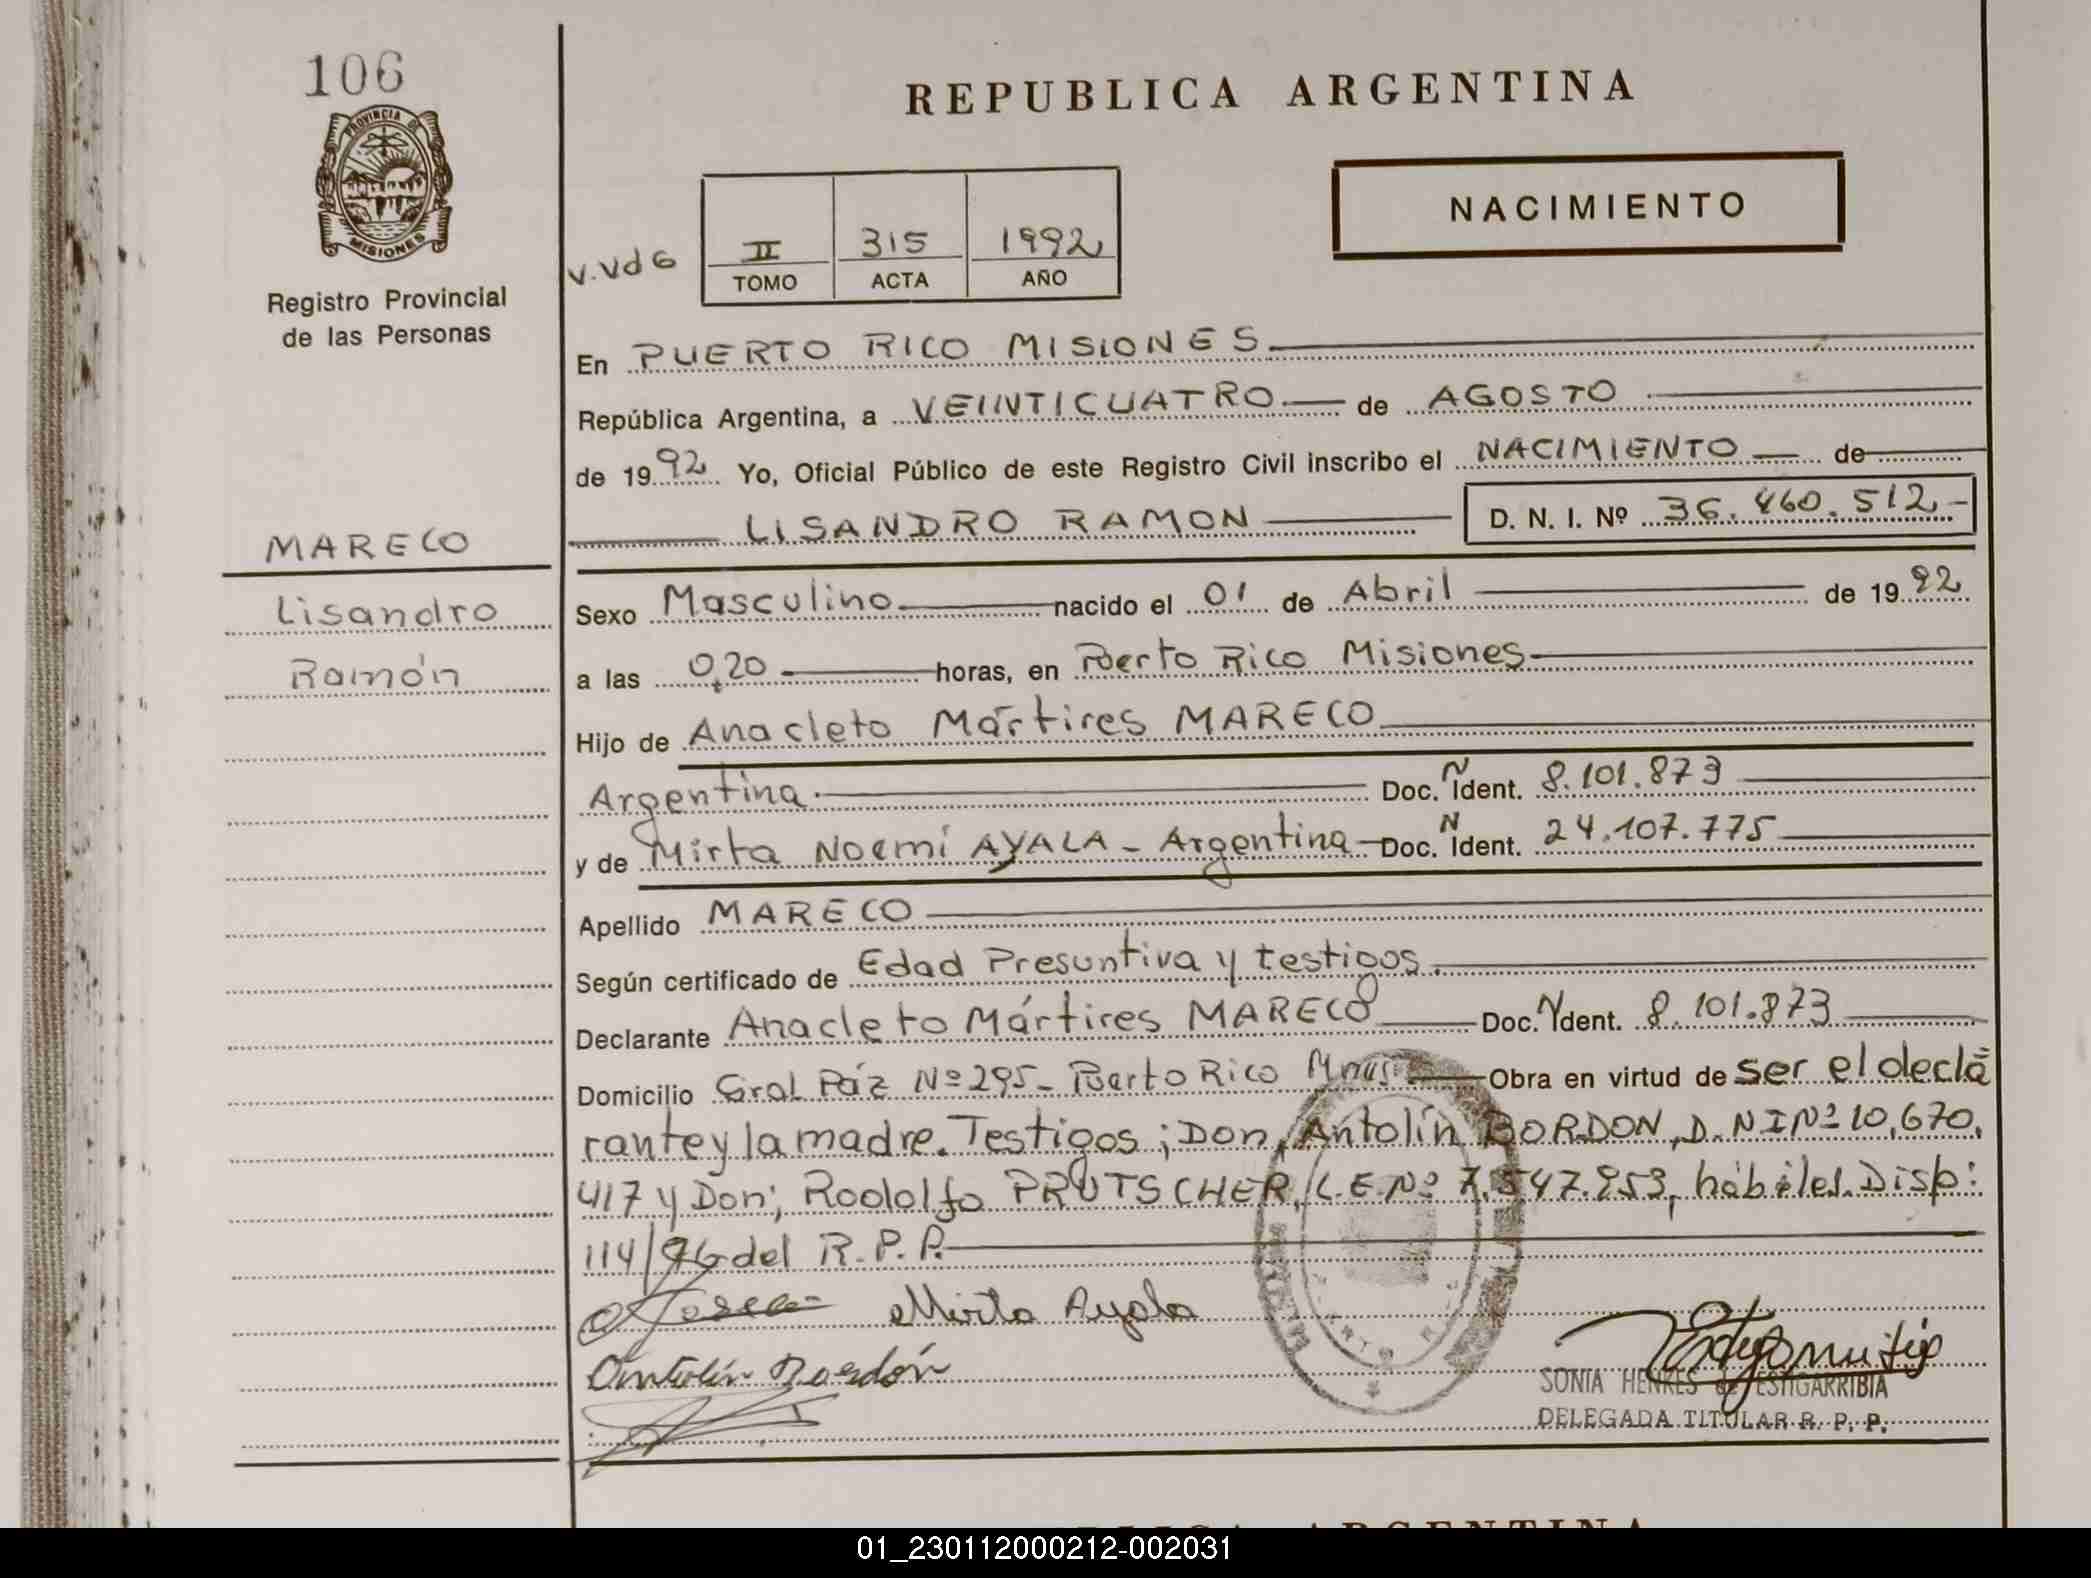 106
PROVINCIA DE
MISIONES
Registro Provincial
de las Personas
MARECO
Lisandro
Ramón
REPUBLICA ARGENTINA
NACIMIENTO
V.Vd6
II 315 1992
TOMO ACTA AÑO
En PUERTO RICO MISIONES
República Argentina, a VEINTICUATRO de AGOSTO
de 1992 Yo, Oficial Público de este Registro Civil inscribo el NACIMIENTO de
LISANDRO RAMON D. N. I. Nº 36.460.512-
Sexo Masculino nacido el 01 de Abril de 1992
a las 0,20 horas, en Puerto Rico Misiones
Hijo de Anacleto Mártires MARECO
Argentina Doc. N Ident. 8.101.873
y de Mirta Noemí AYALA - Argentina Doc. N Ident. 24.107.775
Apellido MARECO
Según certificado de Edad Presuntiva y testigos.
Declarante Anacleto Mártires MARECO Doc. N Ident. 8.101.873
Domicilio Gral Páz Nº 295- Puerto Rico Mnes Obra en virtud de ser el decla
rante y la madre. Testigos; Don, Antolín BORDON, D.NI Nº 10,670,
417 y Don; Rodolfo PRUTSCHER, L.E.Nº 7.547.953, hábiles. Disp:
114/96 del R.P.P.
Mirta Ayala
Antolín Bordón
SONIA HENKES de ESTIGARRIBIA
DELEGADA TITULAR R. P. P.
01_230112000212-002031